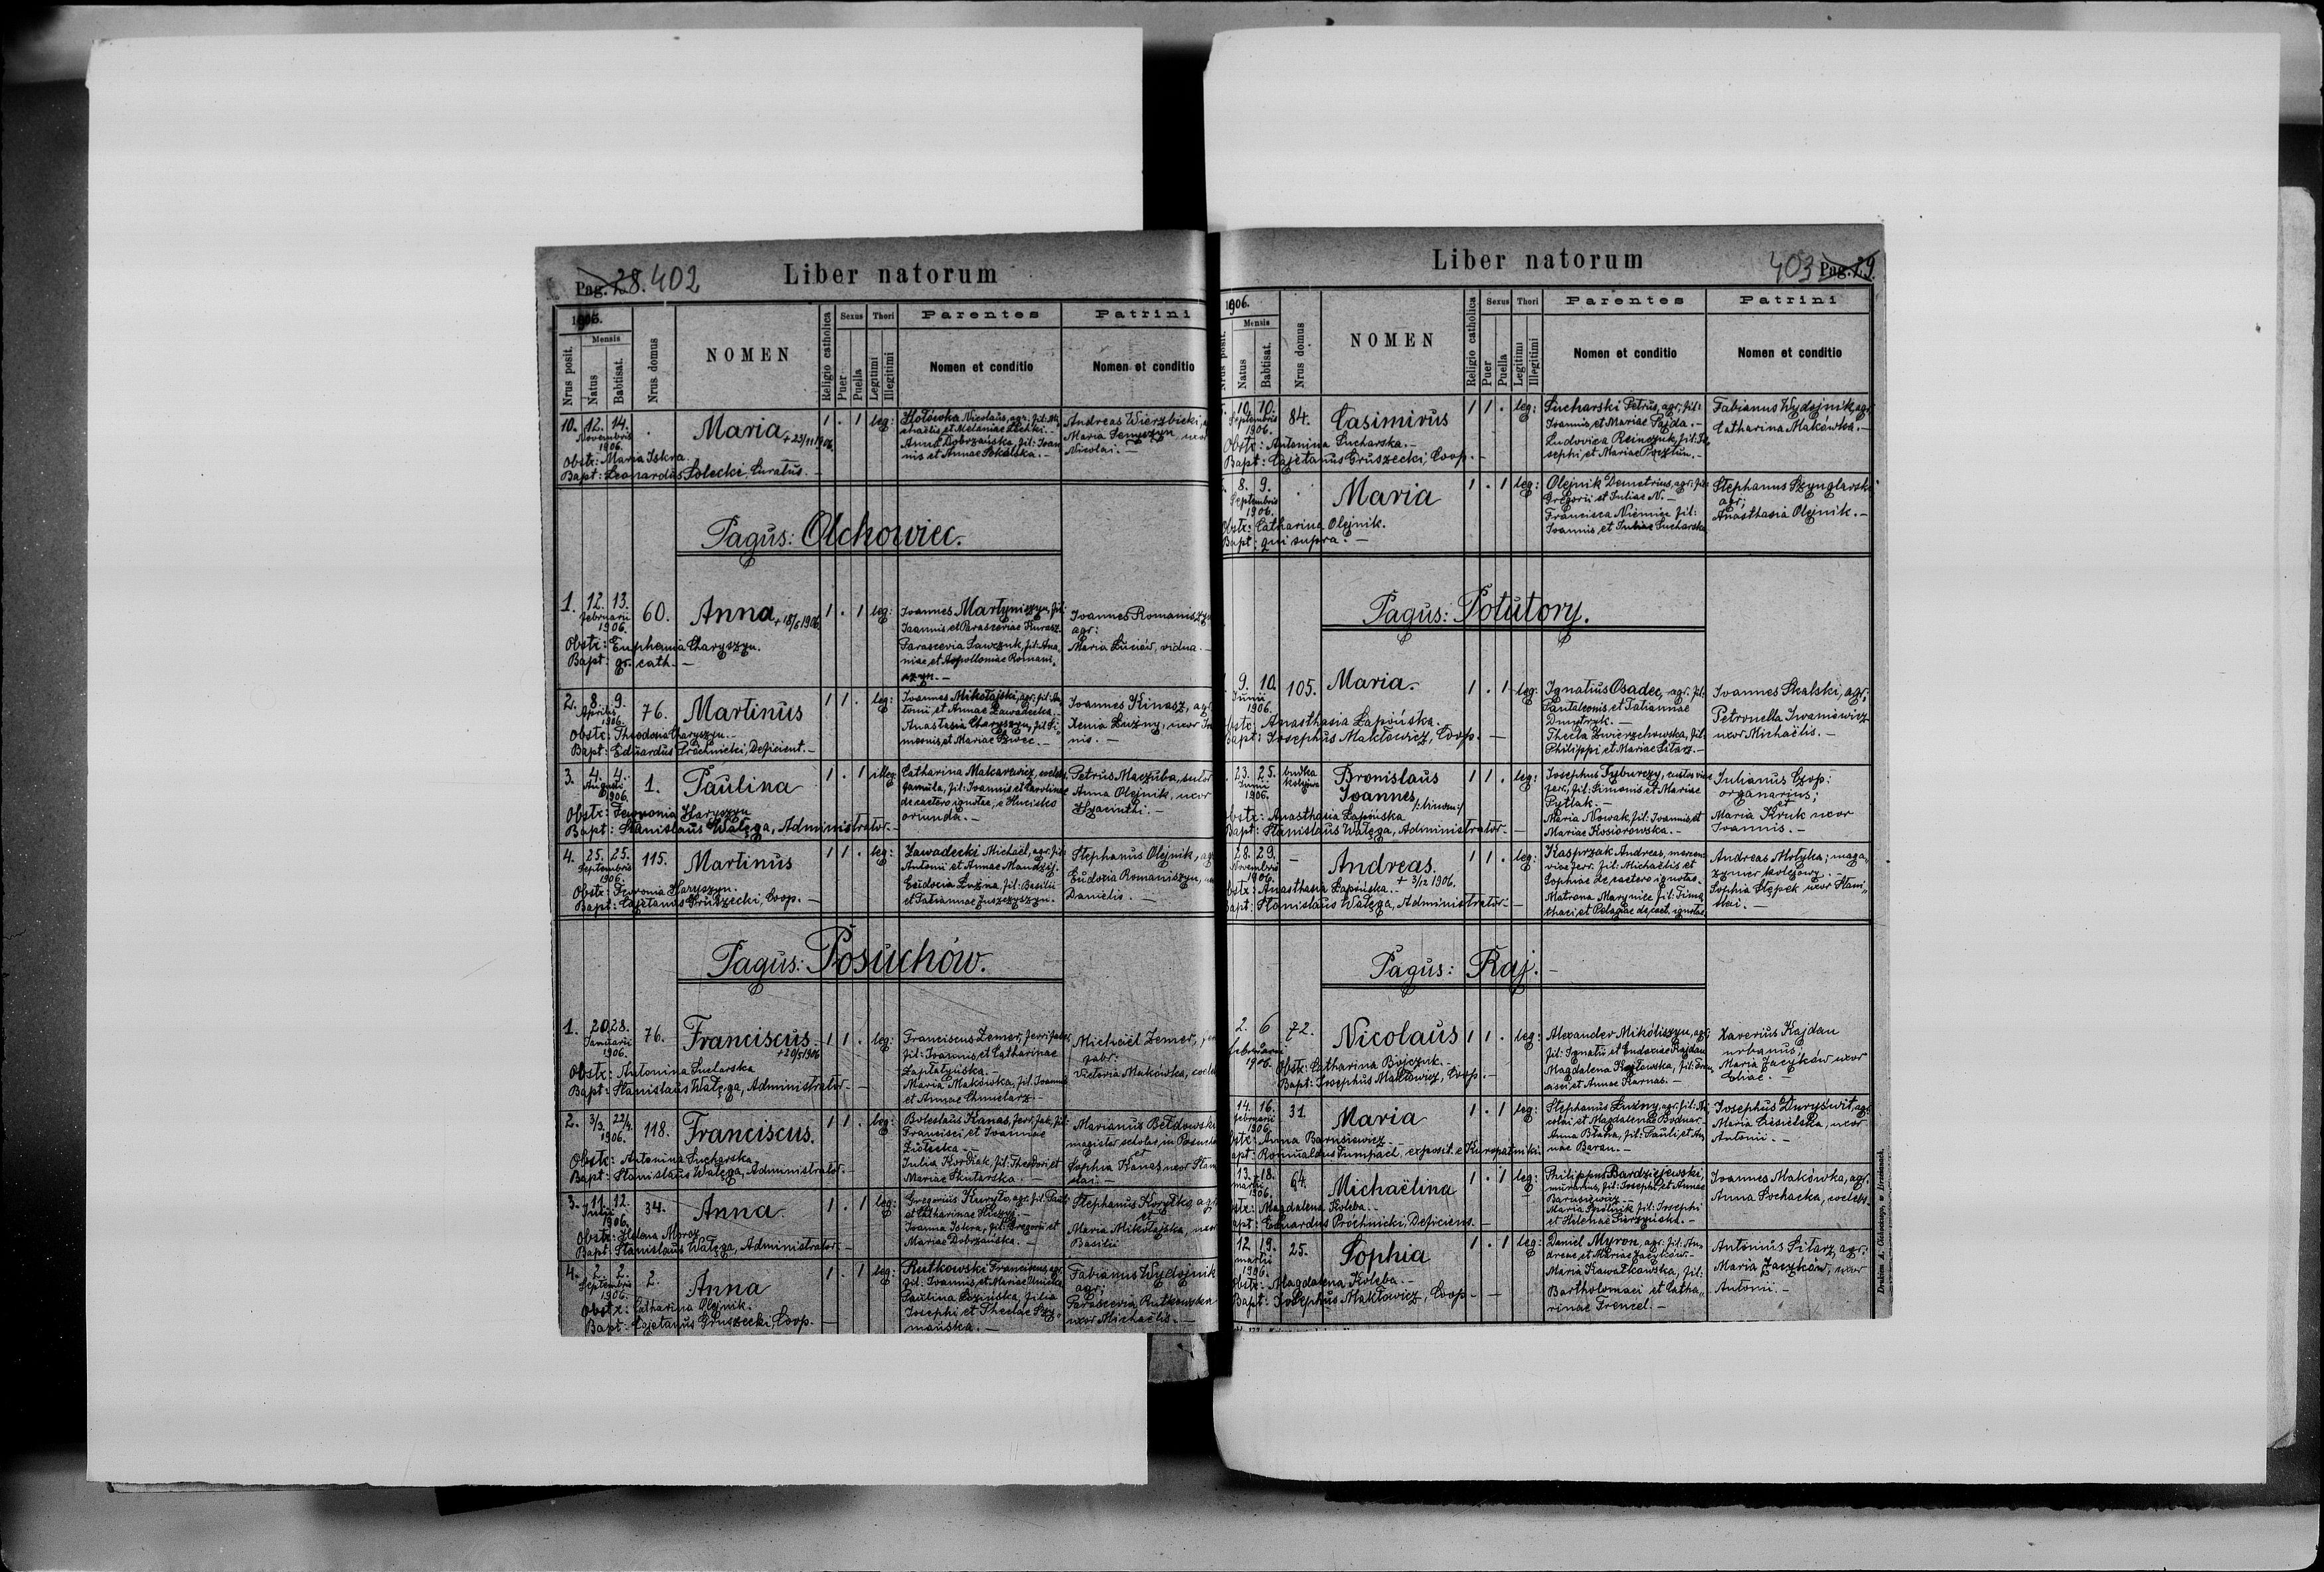 Pag. 28. 402
Liber natorum
1906.
Nrus posit.
Mensis
Natus
Babtisat.
Nrus domus
NOMEN
Religio catholica
Sexus
Puer
Puella
Thori
Legitimi
Illegitimi
Parentes
Nomen et conditio
Patrini
Nomen et conditio
10. 12. 14. Novembris 1906.
Maria + 23/11 1906.
1 . 1 leg:
Nicolaus, agr. fil: Mi-
chaëlis et Melaniae
Anna Dobrzańska, fil: Joan-
nis et Annae Sokalska. -
Andreas Wierzbicki,
Maria Senyszyn, uxor
Nicolai. -
Obstr: Maria Iskra.
Bapt: Leonardus Solecki, Curatus. -
Pagus: Olchowiec.
1. 12. 13. Februarii 1906. 60.
Anna + 18/5 1906.
1 . 1 leg:
Joannes Martyniszyn, fil:
Joannis et Parasceviae
Parascevia Sawczuk, fil: Ana-
niae, et Appolloniae Romani-
szyn. -
Joannes Romaniszyn
agr:
Maria Łuciów, vidua. -
Obstr: Euphemia Charyszyn.
Bapt: gr. cath. -
2. 8. 9. Aprilis 1906. 76.
Martinus
1 1 . leg:
Joannes Mikołajski, agr. fil: An-
tonii, et Annae Zawadecka. -
Anastasia Charyszyn, fil: Si-
meonis, et Mariae Szwec. -
Joannes Kinasz, agr.
Xenia Łuzny, uxor Joan-
nis. -
Obstr: Theodosia Charyszyn. -
Bapt: Eduardus Próchnicki, Deficient. -
3. 4. 4. Augusti 1906. 1.
Paulina
1 . 1 illeg:
Catharina Makarewicz, coelebs,
famula, fil: Joannis et Carolinae
de caetero ignotae, e Hucisko
oriunda. -
Petrus Maczuba, sutor
Anna Olejnik, uxor
Hyacinthi. -
Obstr: Fewronia Haryszyn
Bapt: Stanislaus Wałęga, Administrator. -
4. 25. 25. Septembris 1906. 115.
Martinus
1 1 . leg:
Zawadecki Michaël, agr. fil:
Antonii et Annae Mandzij.
Eudocia Łuzna, fil: Basilii
et Tatiannae Juszczyszyn. -
Stephanus Olejnik, agr
Eudoxia Romaniszyn,
Danielis. -
Obstr: Fewronia Haryszyn.
Bapt: Cajetanus Gruszecki, Coop. -
Pagus: Posuchów.
1. 20. 28. Januarii 1906. 76.
Franciscus. + 20/5 1906
1 1 . leg:
Franciscus Zemer, ferrifaber,
fil: Joannis, et Catharinae
Zapłatyńska. -
Maria Makówka, fil: Joannis
et Annae Chmielarz -
Michaël Zemer,
fabr:
Victoria Makówka,
Obstr: Antonina Sucharska
Bapt: Stanislaus Wałęga, Administrator. -
2. 3/3. 22/4. 1906. 118.
Franciscus.
1 1 . leg:
Boleslaus Kanas, ferr. fab. fil:
Francisci et Joannae
Ziółecka. -
Julia Kordiak, fil: Theodori et
Mariae Skutarska. -
Marianus Bełdowski
magister scholae, in Posuchów
et
Sophia Kanas uxor Stani-
slai. -
Obstr: Antonina Sucharska
Bapt: Stanislaus Wałęga, Administrator. -
3. 11. 12. Julii 1906. 34.
Anna.
1 . 1 leg:
Gregorius Kuryło, agr. fil: Pauli
et Catharinae
Joanna Iskra, fil: Gregorii et
Mariae Dobrzańska. -
Stephanus Korytko agr
et
Maria Mikołajska, uxor
Basilii
Obstr: Helena Moroz
Bapt: Stanislaus Wałęga, Administrator. -
4. 2. 2. Septembris 1906. 2.
Anna
1 . 1 leg:
Rutkowski Franciscus, agr.
fil: Joannis, et Mariae
Paulina Łozińska, filia
Josephi et Theclae Szy-
mańska. -
Fabianus Wydojnik
agr;
Parascevia Rutkowska
uxor Michaëlis. -
Obstr: Catharina Olejnik.
Bapt: Cajetanus Gruszecki, Coop. -
Liber natorum
403 Pag. 29.
1906.
Nrus posit.
Mensis
Natus
Babtisat.
Nrus domus
NOMEN
Religio catholica
Sexus
Puer
Puella
Thori
Legitimi
Illegitimi
Parentes
Nomen et conditio
Patrini
Nomen et conditio
10. 10. Septembris 1906. 84.
Casimirus
1 1 . leg:
Sucharski Petrus, agr. fil:
Joannis, et Mariae Pajda. -
Ludovica Reinczuk, fil: Jo-
sephi, et Mariae Pocztun. -
Fabianus Wydojnik, agr;
Catharina Makówka. -
Obstr: Antonina Sucharska. -
Bapt: Cajetanus Gruszecki, Coop. -
8. 9. Septembris 1906.
Maria
1 . 1 leg:
Olejnik Demetrius, agr. fil:
Gregorii et Juliae N. -
Francisca Niemiec fil:
Joannis, et Juliae Sucharska
Stephanus Szynglarski
agr;
Anasthasia Olejnik. -
Obstr: Catharina Olejnik.
Bapt: qui supra. -
Pagus: Potutory.
9. 10. Junii 1906. 105.
Maria.
1 . 1 leg:
Ignatius Osadec, agr. fil:
Pantaleonis, et Tatiannae
Dmytryk. -
Thecla Zwierzchowska, fil:
Philippi, et Mariae Satarz. -
Joannes Skalski, agr;
Petronella Iwaniewicz
uxor Michaëlis. -
Obstr: Anasthasia Łapińska.
Bapt: Josephus Makłowicz, Coop. -
23. 25. Junii 1906. budka kolejow.
Bronislaus
Joannes /: binom:/
1 1 . leg:
Josephus Tyburczy, custos viae
ferr, fil: Simonis et Mariae
Pytlak. -
Maria Nowak, fil: Joannis, et
Mariae Kosiorowska. -
Julianus Czop:
organarius;
et
Maria Kruk uxor
Joannis. -
Obstr: Anasthasia Łapińska
Bapt: Stanislaus Wałęga, Administrator. -
28. 29. Novembris 1906. -
Andreas.
+ 3/12 1906.
1 1 . leg:
Kasprzak Andreas,
viae ferr. fil: Michaëlis et
Sophiae de caetero ignotae. -
Matrona Marynice fil: Timo-
thaei et Pelagiae de caet. ignotae
Andreas Motyka; maga-
zynier kolejowy. -
Sophia Stępek uxor Stani-
slai. -
Obstr: Anasthasia Łapińska. -
Bapt: Stanislaus Wałęga, Administrator. -
Pagus: Raj. -
2. 6 Februarii 1906. 72.
Nicolaus
1 1 . leg:
Alexander Mikoliszyn, agr.
fil: Ignatii et Eudoxiae Kajdan
Magdalena Kozłowska, fil:
et Annae Karnas. -
Xaverius Kajdan
urbanus;
Maria Jaczków uxor
Eliae. -
Obstr: Catharina Bojczuk. -
Bapt: Josephus Makłowicz, Coop. -
14. 16. Februarii 1906. 31.
Maria
1 . 1 leg:
Stephanus Łuzny, agr. fil: Ni-
colai et Magdalenae Bodnar
Anna Blaha, fil: Pauli, et An-
nae Baran. -
Josephus Duryświt, agr.
Maria Ciesielska, uxor
Antonii. -
Obstr: Anna Barusiewicz. -
Bapt: Romualdus Dumpacl, exposit. e Kuropatniki
13. 18. martii 1906. 64.
Michaëlina
1 . 1 leg:
Philippus Bardziejewski,
murarius, fil: Josephi, et Annae
Barusiewicz -
Maria Smolnik fil: Josephi
et Helenae Pierzyńska. -
Joannes Makówka, agr.
Anna Sochacka, coelebs.
Obstr: Magdalena Koleba. -
Bapt: Eduardus Próchnicki, Deficiens. -
12. 19. martii 1906. 25.
Sophia
1 . 1 leg:
Daniel Myron, agr. fil: An-
dreae, et Mariae Jaczków. -
Maria Kawałkowska, fil:
Bartholomaei et Catha-
rinae Frencel. -
Antonius Sitarz, agr:
Maria Jaczków, uxor
Antonii. -
Obstr: Magdalena Koleba. -
Bapt: Josephus Makłowicz, Coop. -
Drukiem A. Cichockiego, w Brzeżanach.